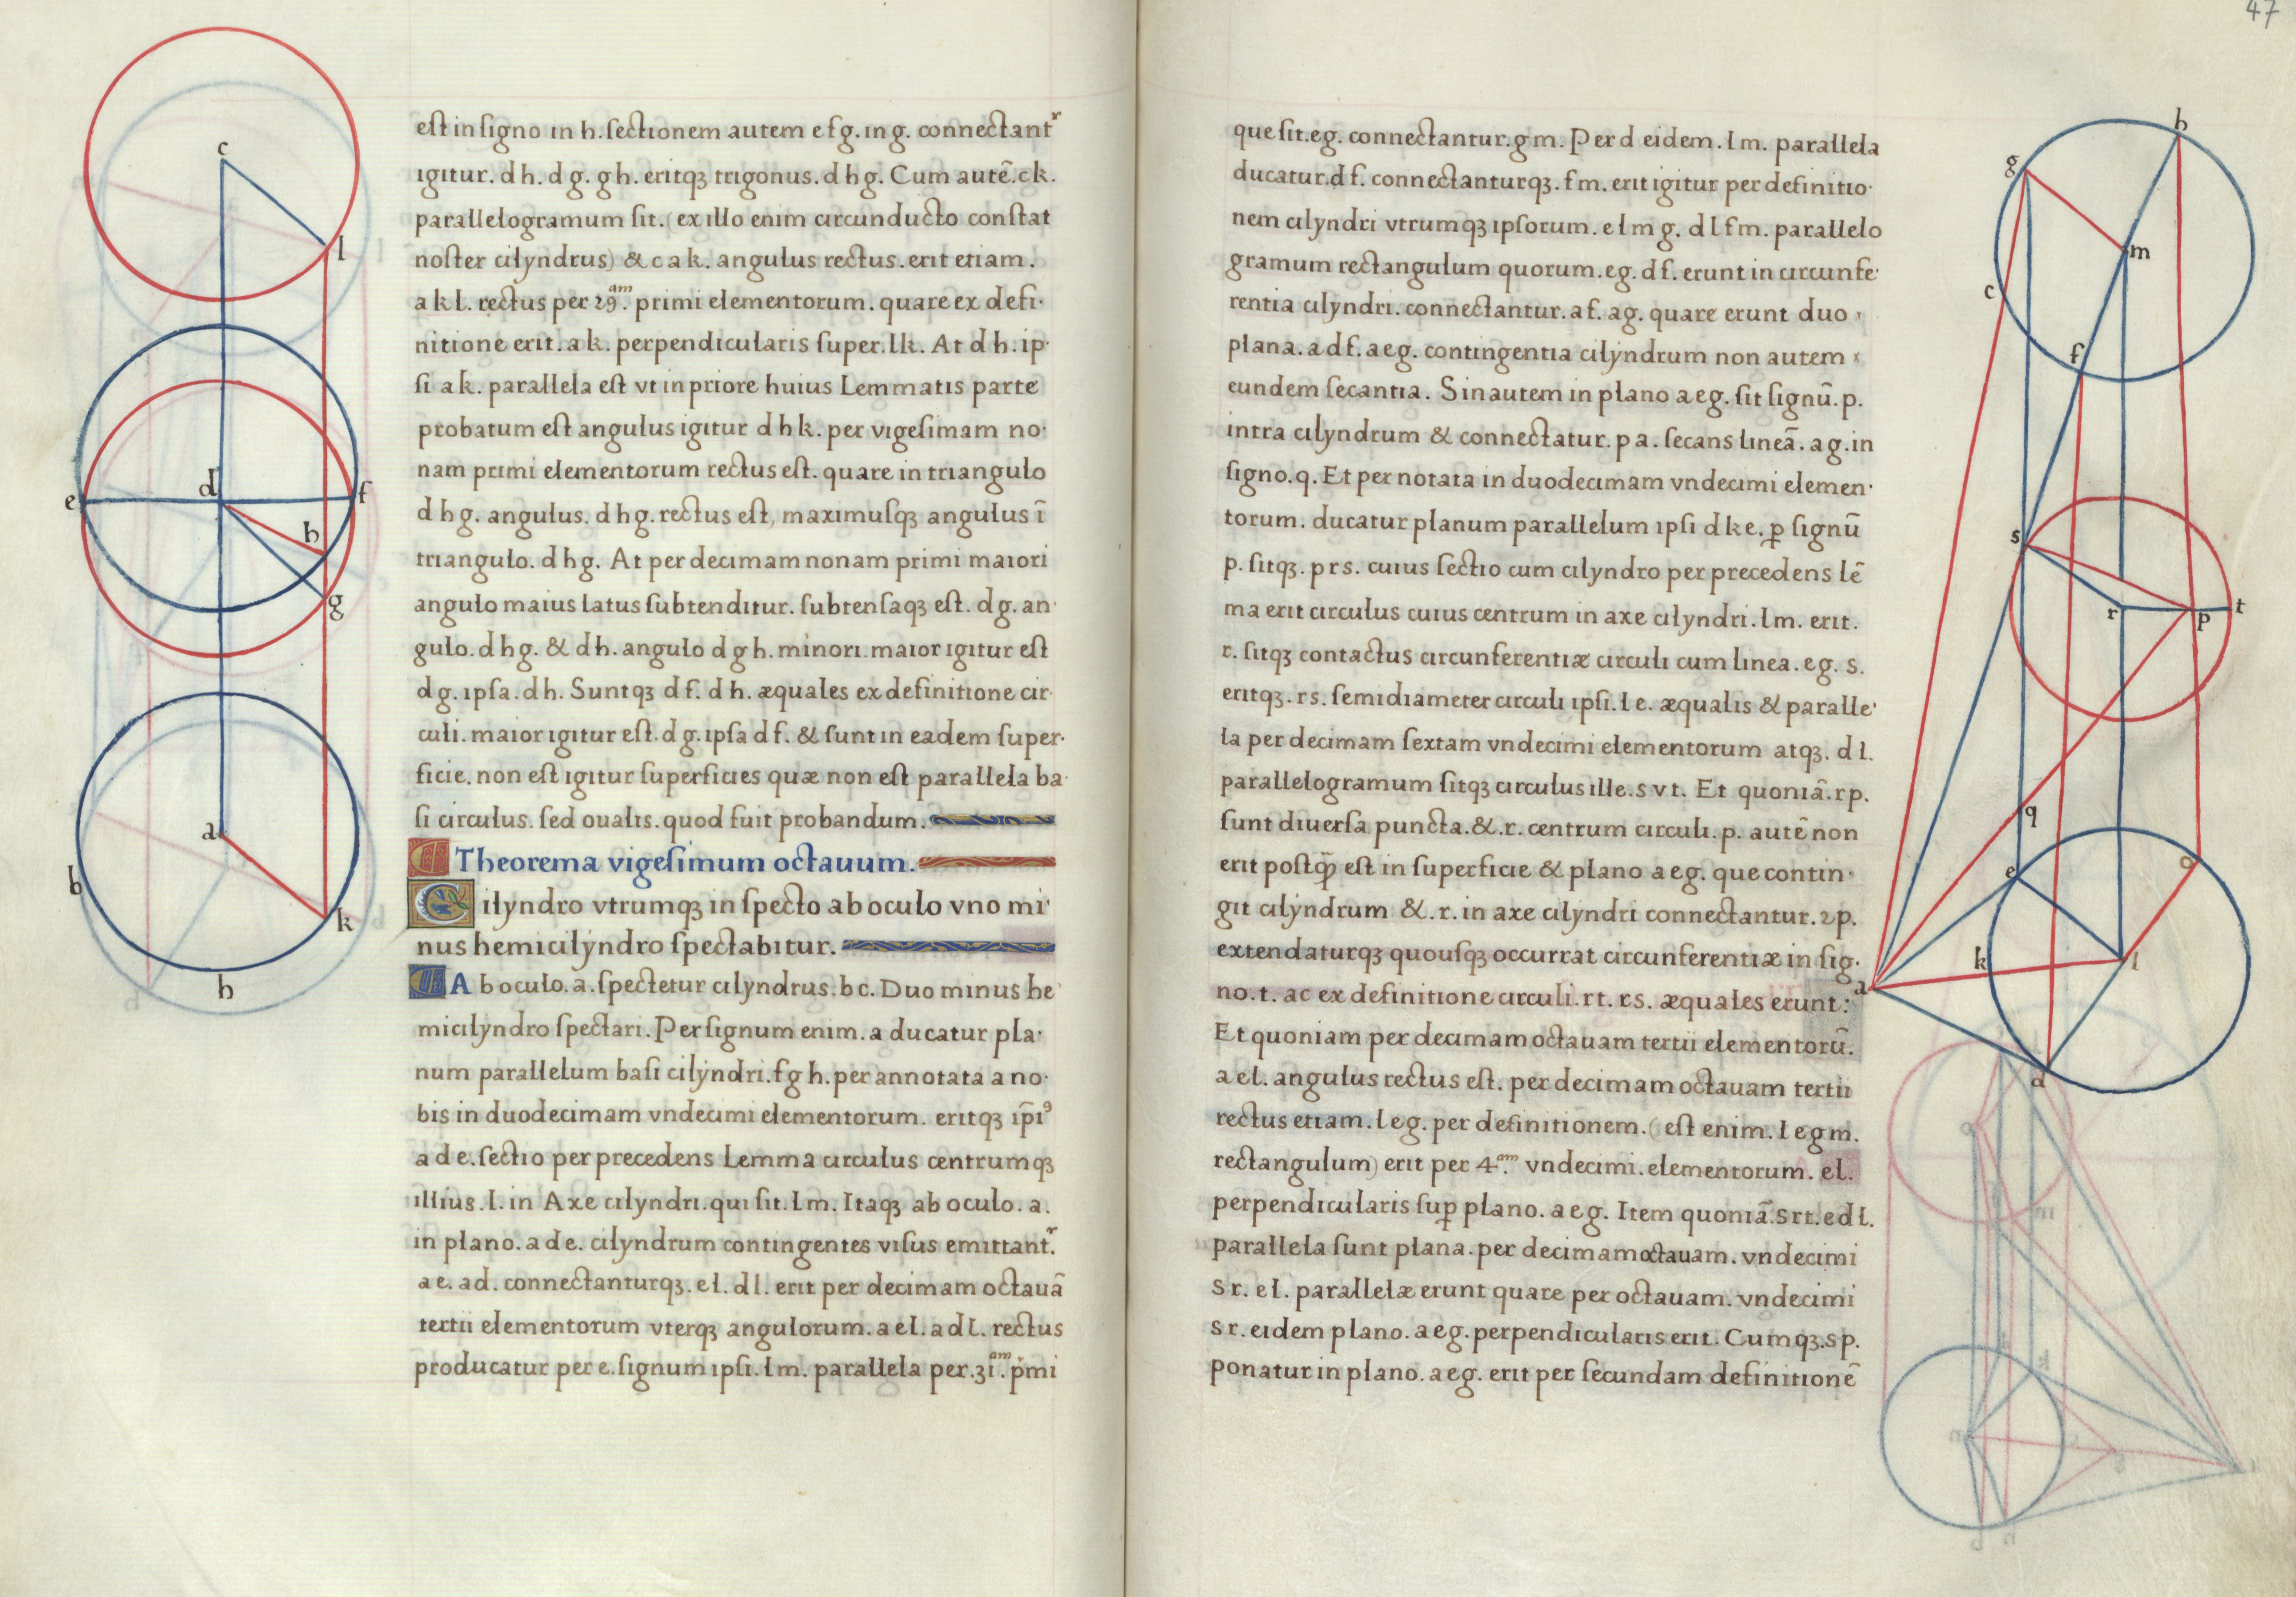 est in signo in h. sectionem autem e f g. in g. connectantr
igitur. d h. d g. g h. eritqꝫ trigonus. d h g. Cum autē. c k.
parallelogramum sit. (ex illo enim circunducto constat
noster cilyndrus) & c a k. angulus rectus. erit etiam.
a k l. rectus per 29.am primi elementorum. quare ex defi·
nitione erit. a k. perpendicularis super. l k. At d h. ip·
si a k. parallela est vt in priore huius Lemmatis parte
probatum est angulus igitur d h k. per vigesimam no·
nam primi elementorum rectus est. quare in triangulo
d h g. angulus. d h g. rectus est, maximusqꝫ angulus ī
triangulo. d h g. At per decimam nonam primi maiori
angulo maius latus subtenditur. subtensaqꝫ est. d g. an·
gulo. d h g. & d h. angulo d g h. minori. maior igitur est
d g. ipsa. d h. Suntqꝫ d f. d h. æquales ex definitione cir·
culi. maior igitur est. d g. ipsa d f. & sunt in eadem super·
ficie. non est igitur superficies quæ non est parallela ba·
si circulus. sed oualis. quod fuit probandum.
Theorema vigesimum octauum.
Cilyndro vtrumqꝫ in specto ab oculo vno mi·
nus hemicilyndro spectabitur.
A b oculo. a. spectetur cilyndrus. b c. Duo minus he·
micilyndro spectari. Per signum enim. a ducatur pla·
num parallelum basi cilyndri. f g h. per annotata a no·
bis in duodecimam vndecimi elementorum. eritqꝫ ip̄i⁹
a d e. sectio per precedens Lemma circulus centrumqꝫ
illius. l. in Axe cilyndri. qui sit. l m. Itaqꝫ ab oculo. a.
in plano. a d e. cilyndrum contingentes visus emittantr.
a e. a d. connectanturqꝫ. e l. d l. erit per decimam octauā
tertii elementorum vterqꝫ angulorum. a e l. a d l. rectus
producatur per e. signum ipsi. l m. parallela per. 31.am p̄mi
c
l
e
d
f
h
g
a
b
k
h
47
que sit. e g. connectantur. g m. Per d eidem. l m. parallela
ducatur. d f. connectanturqꝫ. f m. erit igitur per definitio·
nem cilyndri vtrumqꝫ ipsorum. e l m g. d l f m. parallelo
gramum rectangulum quorum. e g. d f. erunt in circunfe·
rentia cilyndri. connectantur. a f. a g. quare erunt duo
plana. a d f. a e g. contingentia cilyndrum non autem
eundem secantia. Sin autem in plano a e g. sit signū. p.
intra cilyndrum & connectatur. p a. secans lineā. a g. in
signo. q. Et per notata in duodecimam vndecimi elemen·
torum. ducatur planum parallelum ipsi d k e. ꝑ signū
p. sitqꝫ. p r s. cuius sectio cum cilyndro per precedens lē
ma erit circulus cuius centrum in axe cilyndri. l m. erit.
r. sitqꝫ contactus circunferentiæ circuli cum linea. e g. s.
eritqꝫ. r s. semidiameter circuli ipsi. l e. æqualis & paralle·
la per decimam sextam vndecimi elementorum atqꝫ. d l.
parallelogramum sitqꝫ circulus ille. s v t. Et quoniā. r p.
sunt diuersa puncta. &. r. centrum circuli. p. autē non
erit postq̄ȝ est in superficie & plano a e g. que contin·
git cilyndrum &. r. in axe cilyndri connectantur. r p.
extendaturqꝫ quousqꝫ occurrat circunferentiæ in sig·
no. t. ac ex definitione circuli. r t. r s. æquales erunt:
Et quoniam per decimam octauam tertii elementorū.
a e l. angulus rectus est. per decimam octauam tertii
rectus etiam. l e g. per definitionem. (est enim. l e g m.
rectangulum) erit per 4.am vndecimi. elementorum. e l.
perpendicularis suꝑ plano. a e g. Item quoniā. s r t. e d l.
parallela sunt plana. per decimam octauam. vndecimi
s r. e l. parallelæ erunt quare per octauam. vndecimi
s r. eidem plano. a e g. perpendicularis erit. Cumqꝫ. s p.
ponatur in plano. a e g. erit per secundam definitionē
h
g
m
c
f
s
r
p
t
q
o
e
k
l
a
d